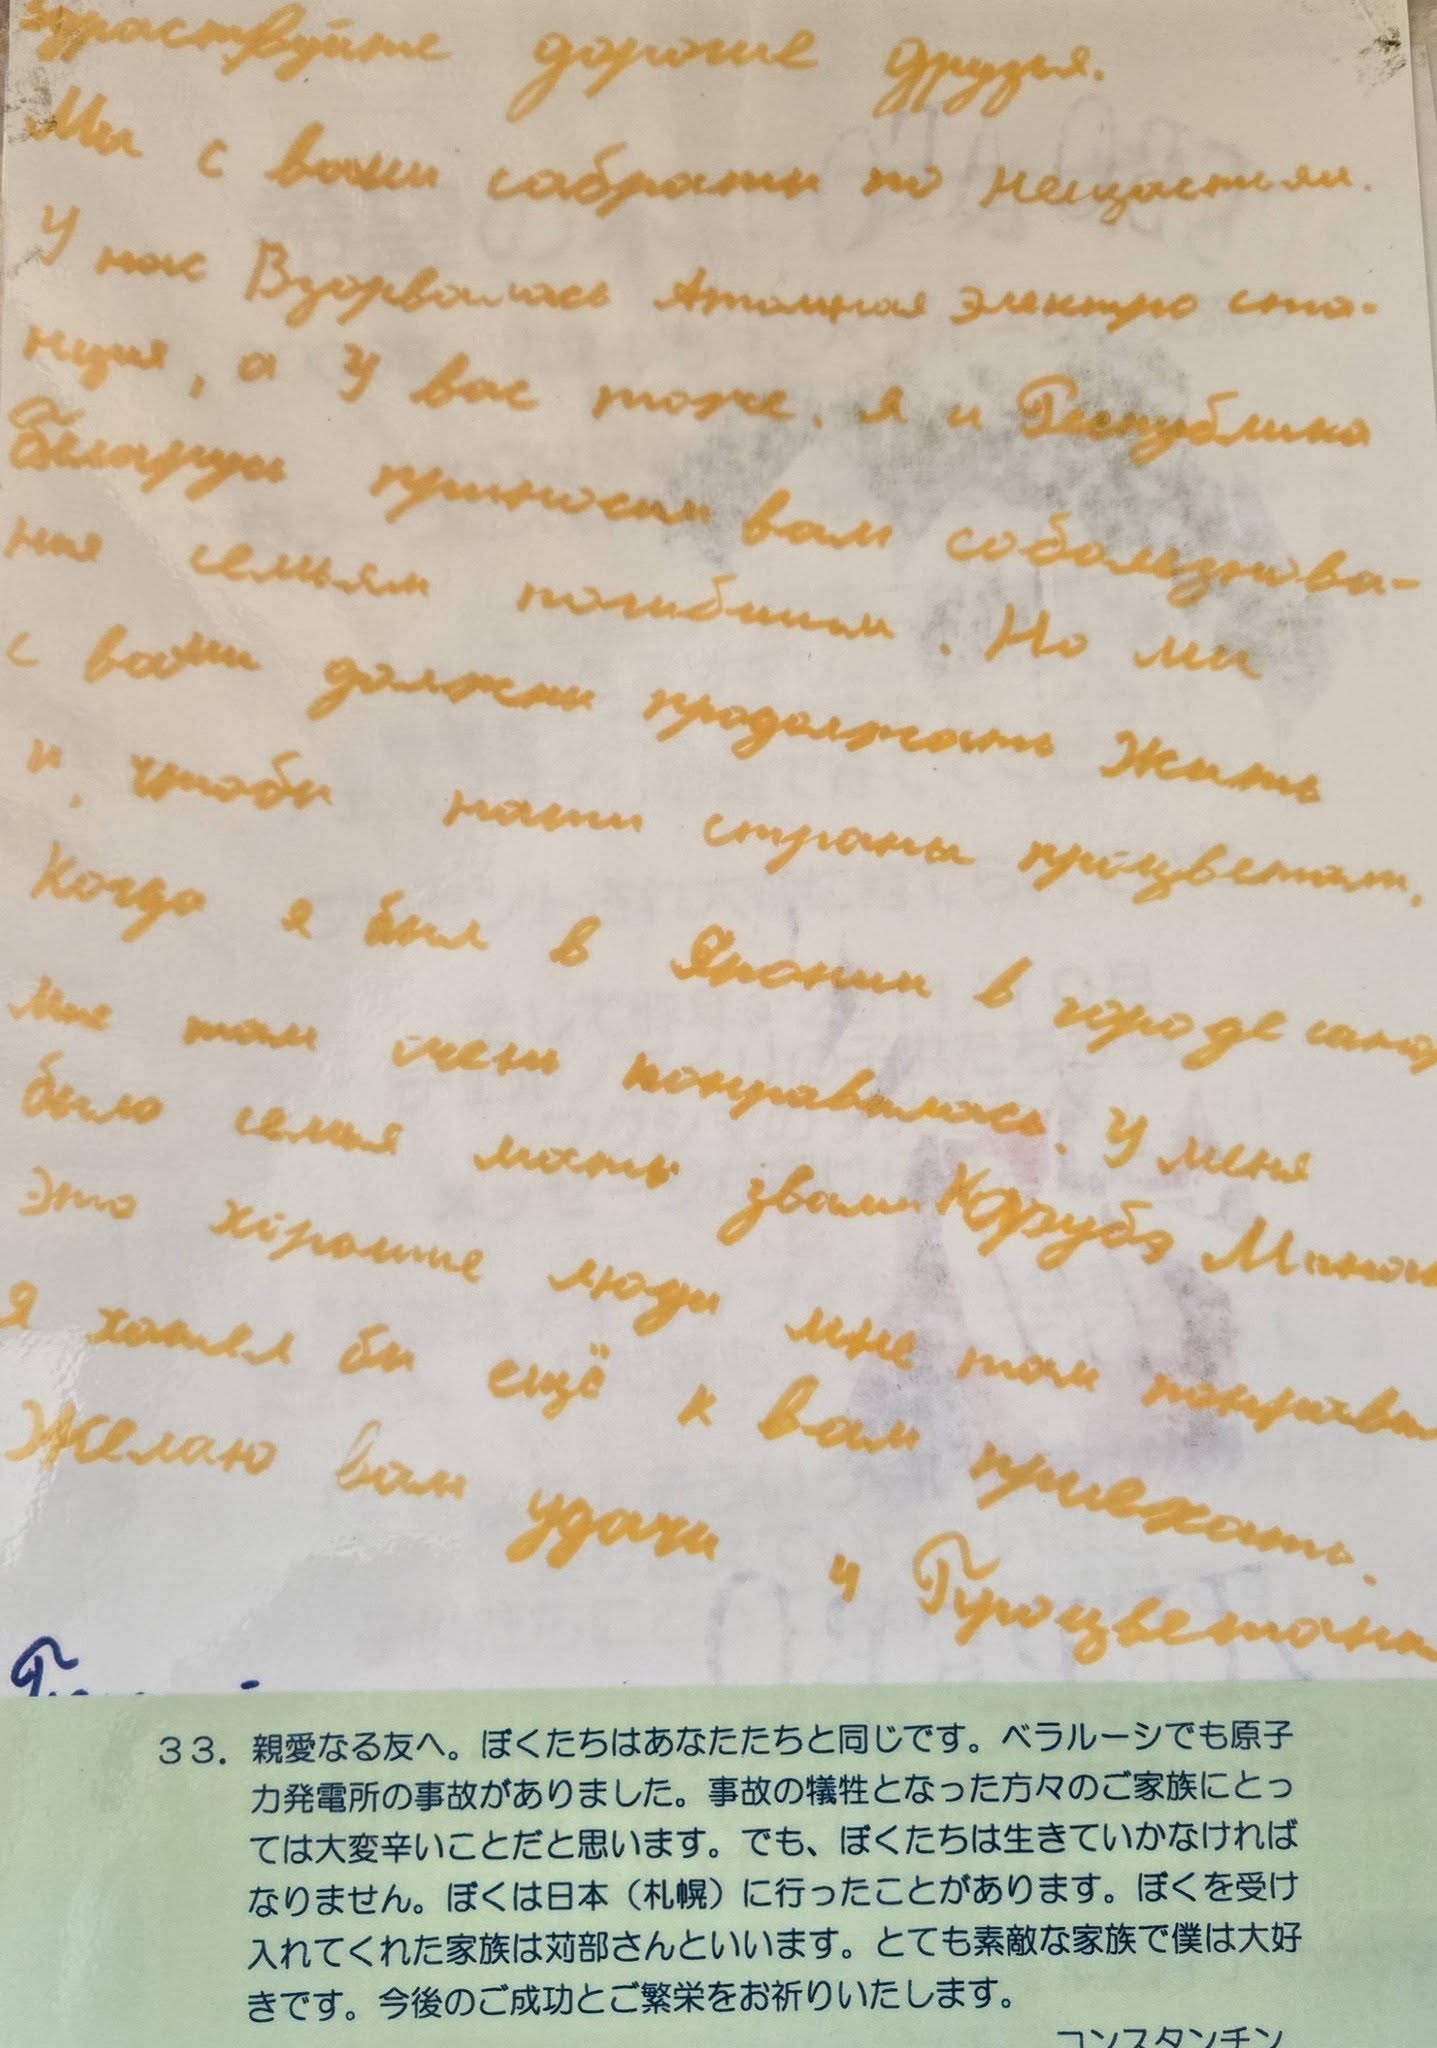 здраствуйте дорогие друзья.
Мы с вами собраты по нещастьям.
У нас Взорвалась Атомная электро ста-
нция, а У вас тоже. я и Республика
Беларусь приносим вам соболезнова-
ния семьям погибшим. Но мы
с вами должны продолжать Жить
и, чтобы наши страны процветали.
Когда я был в Японии в городе
Мне там очень понравилась. У меня
была семья мать звали
Это хорошие люди мне там
Я хотел бы ещё к вам приехать.
Желаю вам удачи и
33. 親愛なる友へ。ぼくたちはあなたたちと同じです。ベラルーシでも原子
力発電所の事故がありました。事故の犠牲となった方々のご家族にとっ
ては大変辛いことだと思います。でも、ぼくたちは生きていかなければ
なりません。ぼくは日本（札幌）に行ったことがあります。ぼくを受け
入れてくれた家族は苅部さんといいます。とても素敵な家族で僕は大好
きです。今後のご成功とご繁栄をお祈りいたします。
コンスタンチン